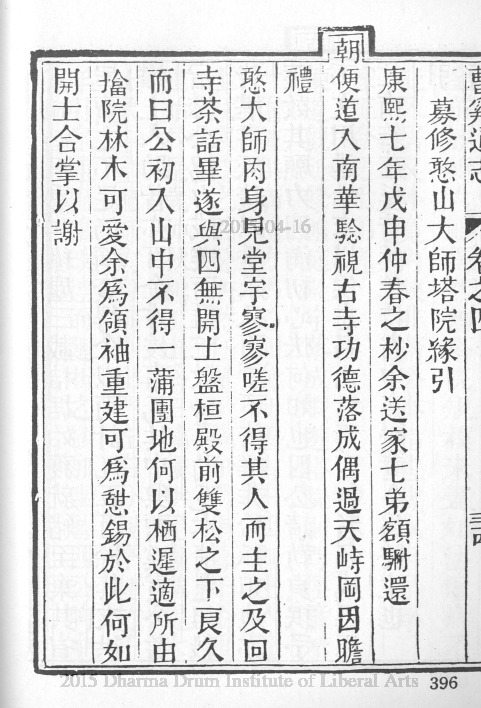 曹溪通志 卷之四
募修憨山大師塔院緣引
康熙七年戊申仲春之杪余送家七弟額駙還
朝便道入南華騐視古寺功德落成偶過天峙岡因瞻
禮
憨大師肉身見堂宇寥寥嗟不得其人而主之及回
寺茶話畢遂與四無開士盤桓殿前雙松之下良久
而曰公初入山中不得一蒲團地何以栖遲適所由
墖院林木可愛余爲領袖重建可爲憇錫於此何如
開士合掌以謝
2015-04-16
2015 Dharma Drum Institute of Liberal Arts
396